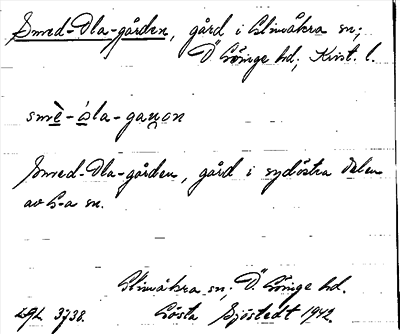 Smed-Ola-gården, gård i Glimåkra sn;
Ö Göinge hd; Krist. l.
smè-óla-ganon
Smed-Ola-gården, gård i sydöstra delen
av G-a sn.
Glimåkra sn; Ö Göinge hd.
3738. Gösta Sjöstedt 1942.